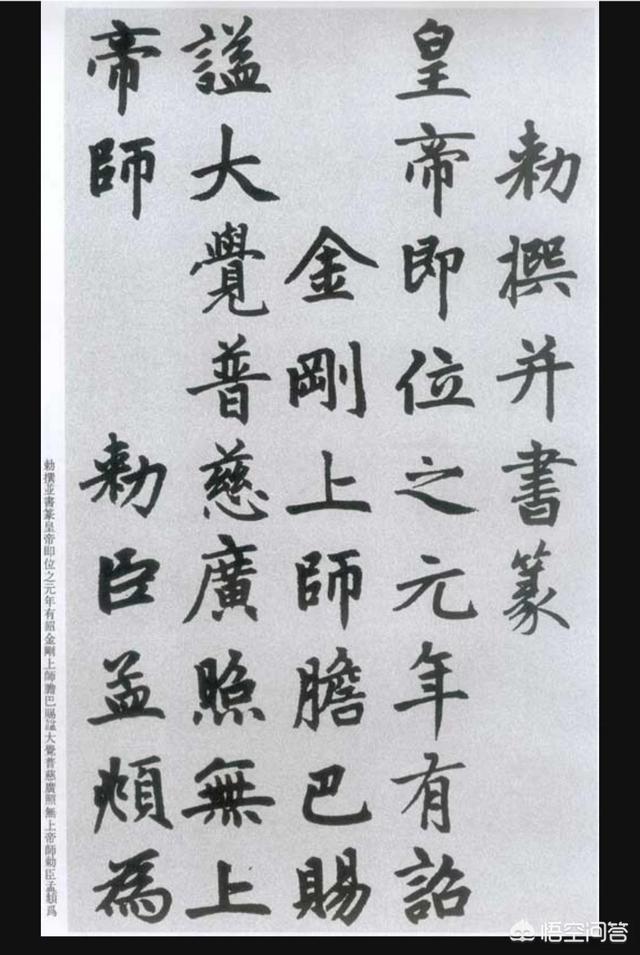 勅撰并書篆
皇帝即位之元年有詔
金剛上師膽巴賜
謚大覺普慈廣照無上
帝師 勅臣孟頫為
勅撰並書篆皇帝即位之元年有詔金剛上師膽巴賜謚大覺普慈廣照無上帝師勅臣孟頫爲
悟空问答